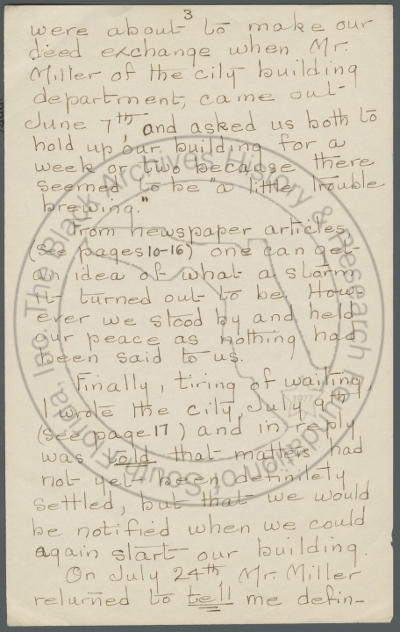 3
were about to make our
deed exchange when Mr.
Miller of the city building
department, came out
June 7th, and asked us both to
hold up our building for a
week or two because there
seemed to be "a little trouble
brewing."
From newspaper articles,
(see pages 10-16) one can get
an idea of what a storm
it turned out to be. How-
ever we stood by and held
our peace as nothing had
been said to us.
Finally, tiring of waiting,
I wrote the city, July 9th
(see page 17) and in reply
was told that matters had
not yet been definitely
settled, but that we would
be notified when we could
again start our building.
On July 24th Mr. Miller
returned to tell me defin-
The Black Archives History & Research Foundation of South Florida, Inc.
1977